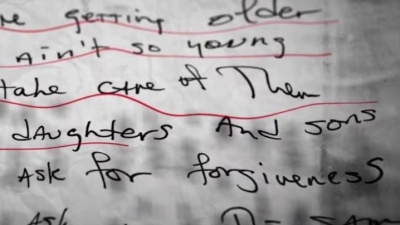 getting older
Ain't so young
take care of Them
daughters And sons
Ask for forgiveness
Ask